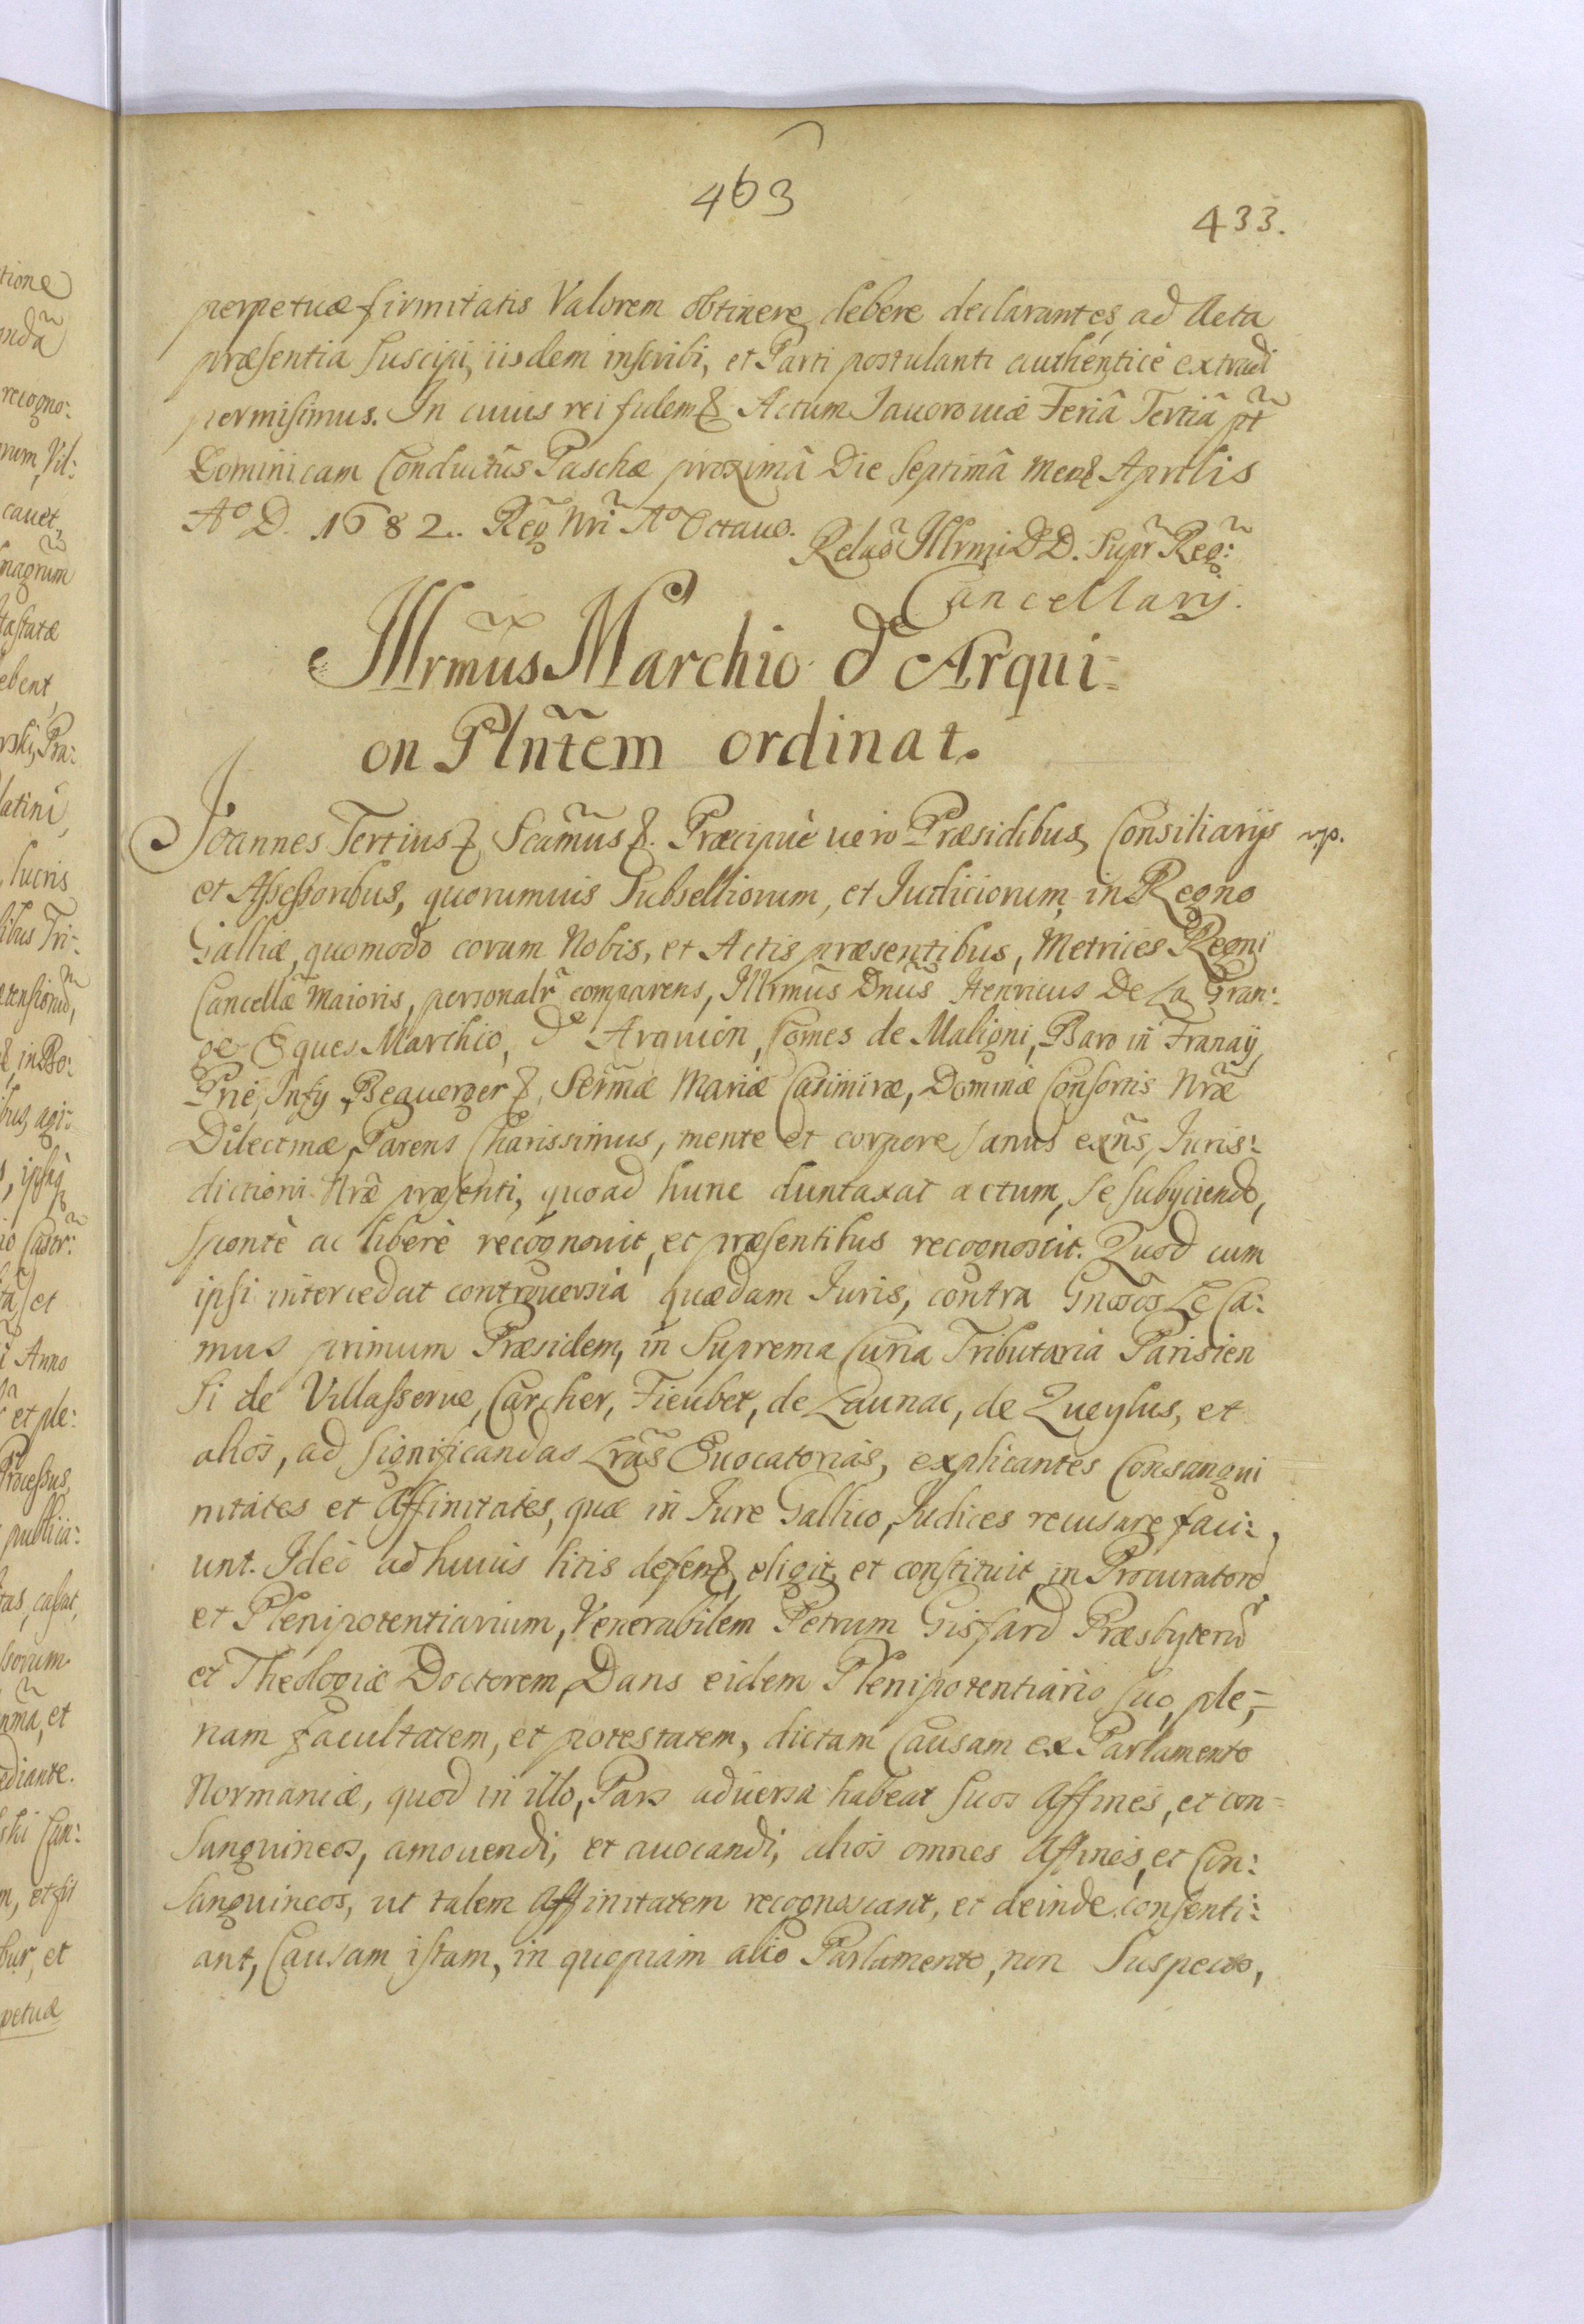 463
433.
perpetuæ firmitatis Valorem obtinere debere declarantes, ad Acta
præsentia suscipi, iisdem inscribi, et Parti postulanti authenticè extradi
permisimus. In cuius rei fidem &. Actum Iauorouiæ Feriâ Tertiâ pt̃
Dominicam Conductûs Paschæ proximâ Die Septimâ mens Aprilis
Aº D. 1682. Reg̃ Nri̅ Aº Octauo. Relaõ Illrmi D D. Supr̃ Reg̃:
Cancellarij.
Illrmũs Marchio d'Arqui=
on Plñtem ordinat.
Joannes Tertius & Scam̃us &. Præcipuè uero Præsidibus, Consiliarijs mp.
et Assessoribus, quorumuis Subselliorum, et Iudiciorum, in Regno
Galliæ, quomodo coram Nobis, et Actis præsentibus, Metrices Regni
Cancellæ Maioris, personalr̃ comparens, Illrmũs Dnũs Henricus De La Gran:
ge Eques Marchio, d'Arquion, Comes de Maligni, Baro in Franaÿ,
Prie, Infy, Beguerger &, Serm̃æ Mariæ Casimiræ, Dominæ Consortis Nræ̃
Dilectmæ, Parens Charissimus, mente et corpore sanus exñs, Iuris:
dictioni Nræ̃ præsenti, quoad hunc duntaxat actum, se subÿciendo,
spontè ac liberè recognouit, et præsentibus recognoscit. Quod cum
ipsi intercedat controuersia quædam Iuris, contra Gnõsos Le Ca:
mus primum Præsidem, in Suprema Curia Tributaria Parisien
si de Villasserue, Carcher, Fieubet, de Launac, de Queylus, et
alios, ad significandas Lrãs Euocatorias, explicantes Consangui
nitates et Affinitates, quæ in Iure Gallico, Iudices recusare faci:
unt. Ideò ad huius litis defens, eligit, et constituit, in Procuratorẽ
et Plenipotentiarium, Venerabilem Petrum Gisfard Præsbyterũ
et Theologiæ Doctorem, Dans eidem Plenipotentiario suo, ple,=
nam facultatem, et potestatem, dictam Causam ex Parlamento
Normaniæ, quod in illo, Pars aduersa habeat suos Affines, et con=
sanguineos, amouendi, et auocandi, alios omnes Affines, et Con:
sanguineos, ut talem Affinitatem recognoscant, et deinde consenti:
ant, Causam istam, in quopiam alio Parlamento, non Suspecto,